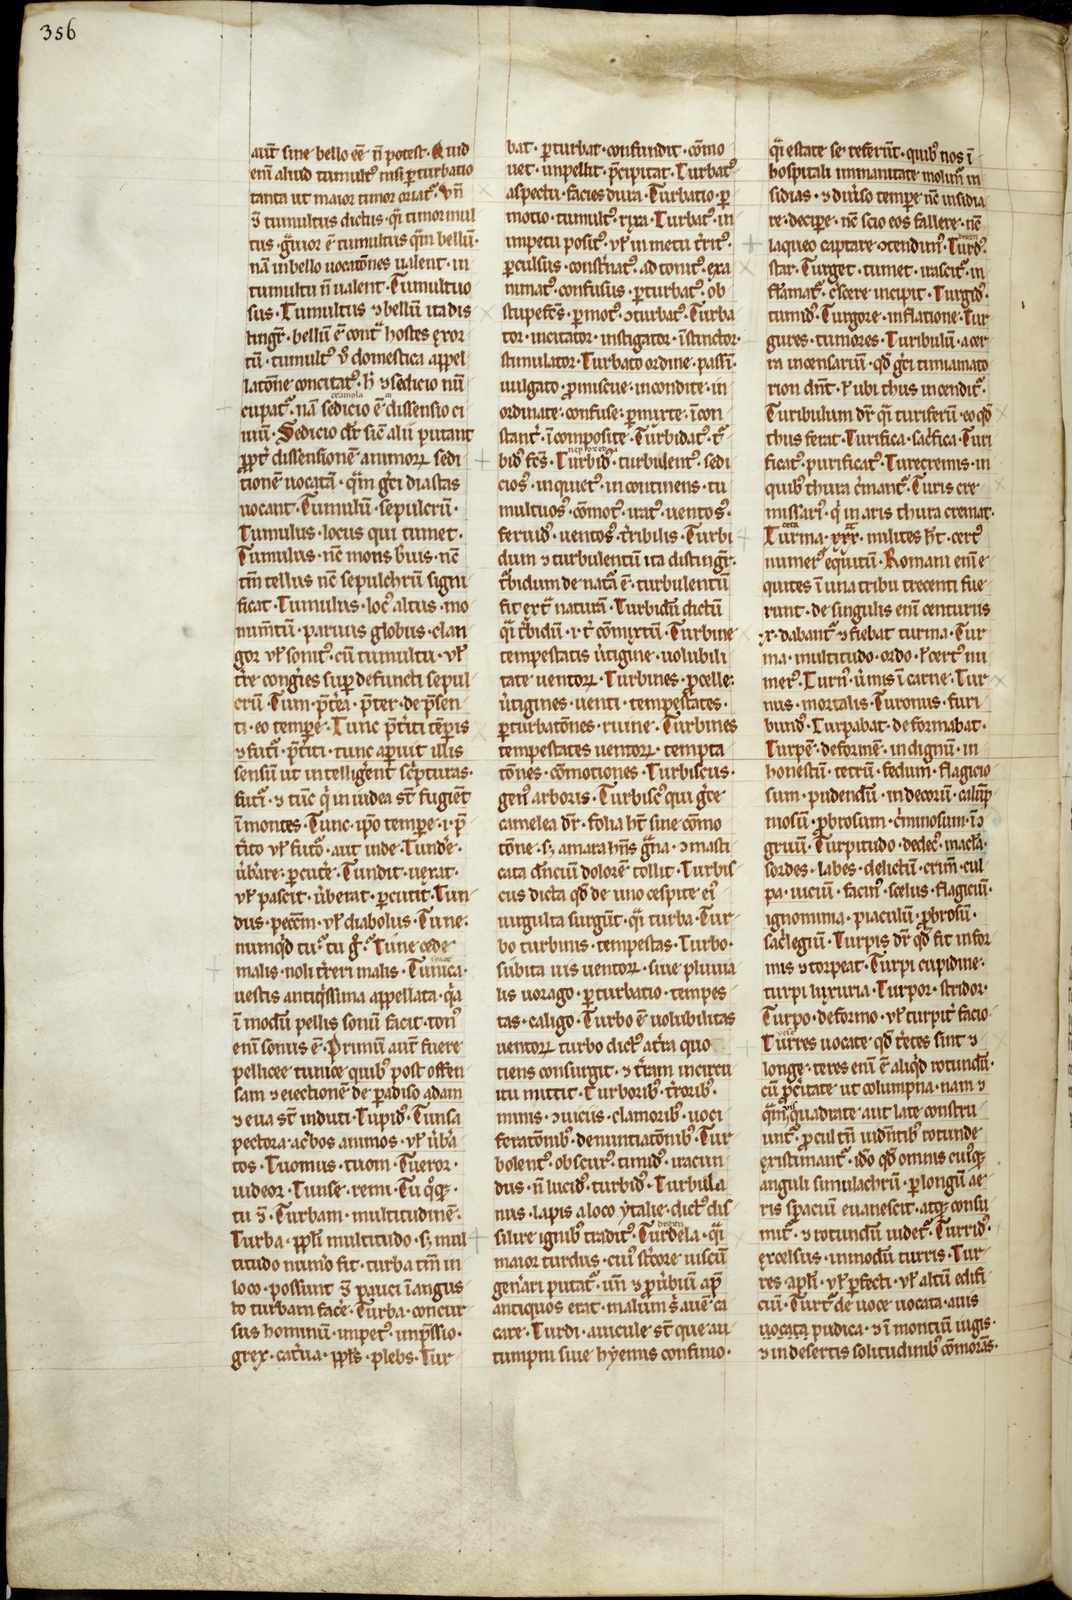 356
aut̄ sine bello eē n̄ potest· Quid
enī aliud tumultꝰ nisi ꝑturbatio
tanta ut maior timor oriatᷣ· Vn̄
tumultus dictus· qͣi timor mul
tus· gͣuior ē tumultus qͣm bellū·
nā in bello uocatōnes ualent· in
tumultu n̄ ualent· Tumultuo
sus· Tumultus ⁊ bellū ita dis
tingr̄· bellū ē contͣ hostes exor
tū· tumultꝰ ꝟ domestica appel
latōne concitatꝰ· h̄ ⁊ sedicio nū
cramola
cupatᷣ· nā sedicio ē dissensio ci
uiū· Sedicio dr̄ sic̄ alii putant
ꝓpt̄ dissensionē animoꝝ sedi
tionē uocatā· qͣm gͥci diastas
uocant· Tumulū· sepulcrū·
Tumulus· locus qui tumet·
Tumulus· nc̄ mons b̄uis· nc̄
tm̄ tellus nc̄ sepulchrū signi
ficat· Tumulus· locꝰ altus· mo
num̄tū· paruus globus· clan
gor uł sonitꝰ· cū tumultu· uł
t̄re congͥes suꝑ defuncti sepul
crū· Tum· p̄t̄ea· p̄ter· de p̄sen
ti· eo tempe· Tunc p̄t̄iti tēpͥis
⁊ futᷣi· p̄t̄iti· tunc aꝑuit illis
sensū ut intelligͥent sc̄pturas·
futᷣi· ⁊ tūc qͥ in iudea st̄ fugiēt
ī montes· Tunc· ip̄o tempe· ı· p̄
t̄ito uł futᷣo· aut inde· Tunde·
ūb̄are· ꝑcut̄e· Tundit· uexat·
uł pascit· ūberat· ꝑcutit· Tun
dus· pecc̄m· uł diabolus· Tune·
numqͥd tu· tu gͦ· Tune cede
malis· noli t̄reri malis· Tunica·
uestis antiqͥssima appellata· qͥa
ī modū pellis sonū facit· tonꝰ
enī sonus ē· Primū aut̄ fuere
pellicee tunice quibꝰ post offen
sam ⁊ eiectionē de ꝑadiso adam
⁊ eua st̄ induti· Tupidꝰ· Tunsa
pectora· ac̄bos animos· uł ūb̄a
tos· Tuomus· tuom· Tueror·
uideor· Tunse· remi· Tu qͦqꝫ·
Turbam· multitudinē·
Turba· ppl̄i multitudo· sꝫ mul
titudo num̄o fit· turba tm̄ in
loco· possunt pauci ī angus
to turbam face· Turba· concur
sus hominū· impetꝰ· imp̄ssio·
grex· cat̄ua· ppl̄s· plebs· Tur
bat· ꝑturbat· confundit· cōmo
uet· impellit· p̄cipitat· Turbatꝰ
aspectu· facies dira· Turbatio· ꝑ
motio· tumultꝰ· rixa· Turbatꝰ· in
impetu positꝰ· uł in metu t̄ritꝰ·
ꝑculsus· const̄natꝰ· ad tonitꝰ· exa
nimatꝰ· confusus· ꝑturbatꝰ· ob
stupefc̄s· ꝑmotꝰ· ꝯturbatꝰ· Turba
tor· incitator· instigator· īstinctor·
stimulator· Turbato ordine· passī·
uulgato· ꝓmiscue· incondite· in
ordinate· confuse· ꝑmixte· īcon
stant̄· īcomposite· Turbidatꝰ· tᷣ
bidꝰ fc̄s· Turbidꝰ· turbulentꝰ· sedi
ciosꝰ· inquietꝰ· in continens· tu
multuosꝰ· cōmotꝰ· iratꝰ· uentosꝰ·
feruidꝰ· uentosꝰ· t̄ribilis· Turbi
dum ⁊ turbulentū ita distingr̄·
tᷣbidum de natᷣa ē· turbulentū
fit extͣ naturā· Turbidū dictū
qͣi tᷣbidū· ı· t̄ cōmixtū· Turbine
tempestatis ūtigine· uolubili
tate uentoꝝ· Turbines· ꝓcelle·
ūtigines· uenti· tempestates·
ꝑturbatōnes· ruine· Turbines
tempestates uentoꝝ· tempta
tōnes· cōmotiones· Turbiscus·
genꝰ arboris· Turbiscꝰ qui gͥce
camelea dr̄· folia ht̄ sine cōmo
tōne· sꝫ amara hn̄s gͣna· ⁊ masti
cata dn̄ciū dolorē tollit· Turbis
cus dicta qd̄ de uno cespite eiꝰ
uirgulta surgūt· qͣi turba· Tur
bo turbinis· tempestas· Turbo·
subita uis uentoꝝ· siue pluuia
lis uorago· ꝑturbatio· tempes
tas· caligo· Turbo ē uolubilitas
uentoꝝ turbo dictꝰ at̄ra quo
tiens consurgit· ⁊ t̄ram incircu
itu mittit· Turboribꝰ· t̄roribꝰ·
minis· ꝯuiciis· clamoribꝰ· uoci
feratōnibꝰ· denuntiatōnibꝰ· Tur
bolentꝰ· obscurꝰ· timidꝰ· iracun
dus· n̄ lucidꝰ· turbidꝰ· Turbula
nus· lapis a loco ẏtalie· dictꝰ dis
silire ignibꝰ traditꝰ· Turdela· qͣi
maior turdus· cuiꝰ st̄core uiscū
gen̄ari putatᷣ· un̄ ⁊ ꝓūbiū apͩ
antiquos erat· malum s̄ auē ca
care· Turdi· auicule st̄ que au
tumpni siue hẏemis confinio·
qͣi estate se referūt· quibꝰ nos ī
hospitali immanitate molim̄ in
sidias· ⁊ diūso tempe nc̄ insidia
re· decipe· nc̄ scio eos fallere· nc̄
laqueo captare ꝯtendimꝰ· Turdꝰ·
star· Turget· tumet· irascitᷣ· in
flāmatᷣ· c̄scere incipit· Turgidꝰ·
tumidꝰ· Turgore· inflatione· Tur
gures· tumores· Turibulū· acer
ra incensariū· qd̄ gͥci timiamato
rion dn̄t· uł ubi thus incenditᷣ·
Turibulum dr̄ qͣi turiferū· eo qd̄
thus ferat· Turifica· sac̄fica· Turi
ficatꝰ· purificatꝰ· Turecremis· in
quibꝰ thura c̄mantᷣ· Turis cre
missariꝰ· qͥ in aris thura cremat·
Turma· xxx· milites ht̄· certꝰ
numerꝰ equitū· Romani enī e
quites ī una tribu trecenti fue
runt· de singulis enī centuriis
x· dabantᷣ· ⁊ fiebat turma· Tur
ma· multitudo· ordo· uł certꝰ nu
merꝰ· Turnꝰ· ūmis ī carne· Tur
nus· mortalis· Turonus· furi
bundꝰ· Turpabat· deformabat·
Turpē· deformē· indignū· in
honestū· tetrū· fedum· flagicio
sum· pudendū· indecorū· calūp
niosū· ꝓbrosum· c̄minosum· īꝯ
gruū· Turpitudo· dedecꝰ· macl̄a·
sordes· labes· delictū· crim̄· cul
pa· uiciū· facinꝰ· scelus· flagiciū·
ignominia· piaculū· ꝓbrosū·
sac̄legiū· Turpis dr̄ qd̄ sit infor
mis ⁊ torpeat· Turpi cupidine·
turpi luxuria· Turpor· stridor·
Turpo· deformo· uł turpit̄ facio·
Turres uocate qd̄ t̄etes sint ⁊
longe· teres enī ē aliqͥd rotundū·
cū ꝓc̄itate ut columpna· nam ⁊
qͣmuis quadrate aut late constru
untᷣ· ꝓcul tn̄ uidn̄tibꝰ rotunde
existimantᷣ· id̄o qd̄ omnis cuiꝰqꝫ
anguli simulachrū· ꝑ longū ae
ris spaciū euanescit· atqꝫ consu
mitᷣ· ⁊ rotundū uidetᷣ· Turridꝰ·
excelsus· inmodū turris· Tur
res apl̄i· uł ꝑfecti· uł altū edifi
ciū· Turtᷣ de uoce uocata· auis
uocata pudica· ⁊ ī montiū iugis·
⁊ in desertis solitudinibꝰ cōmorās·